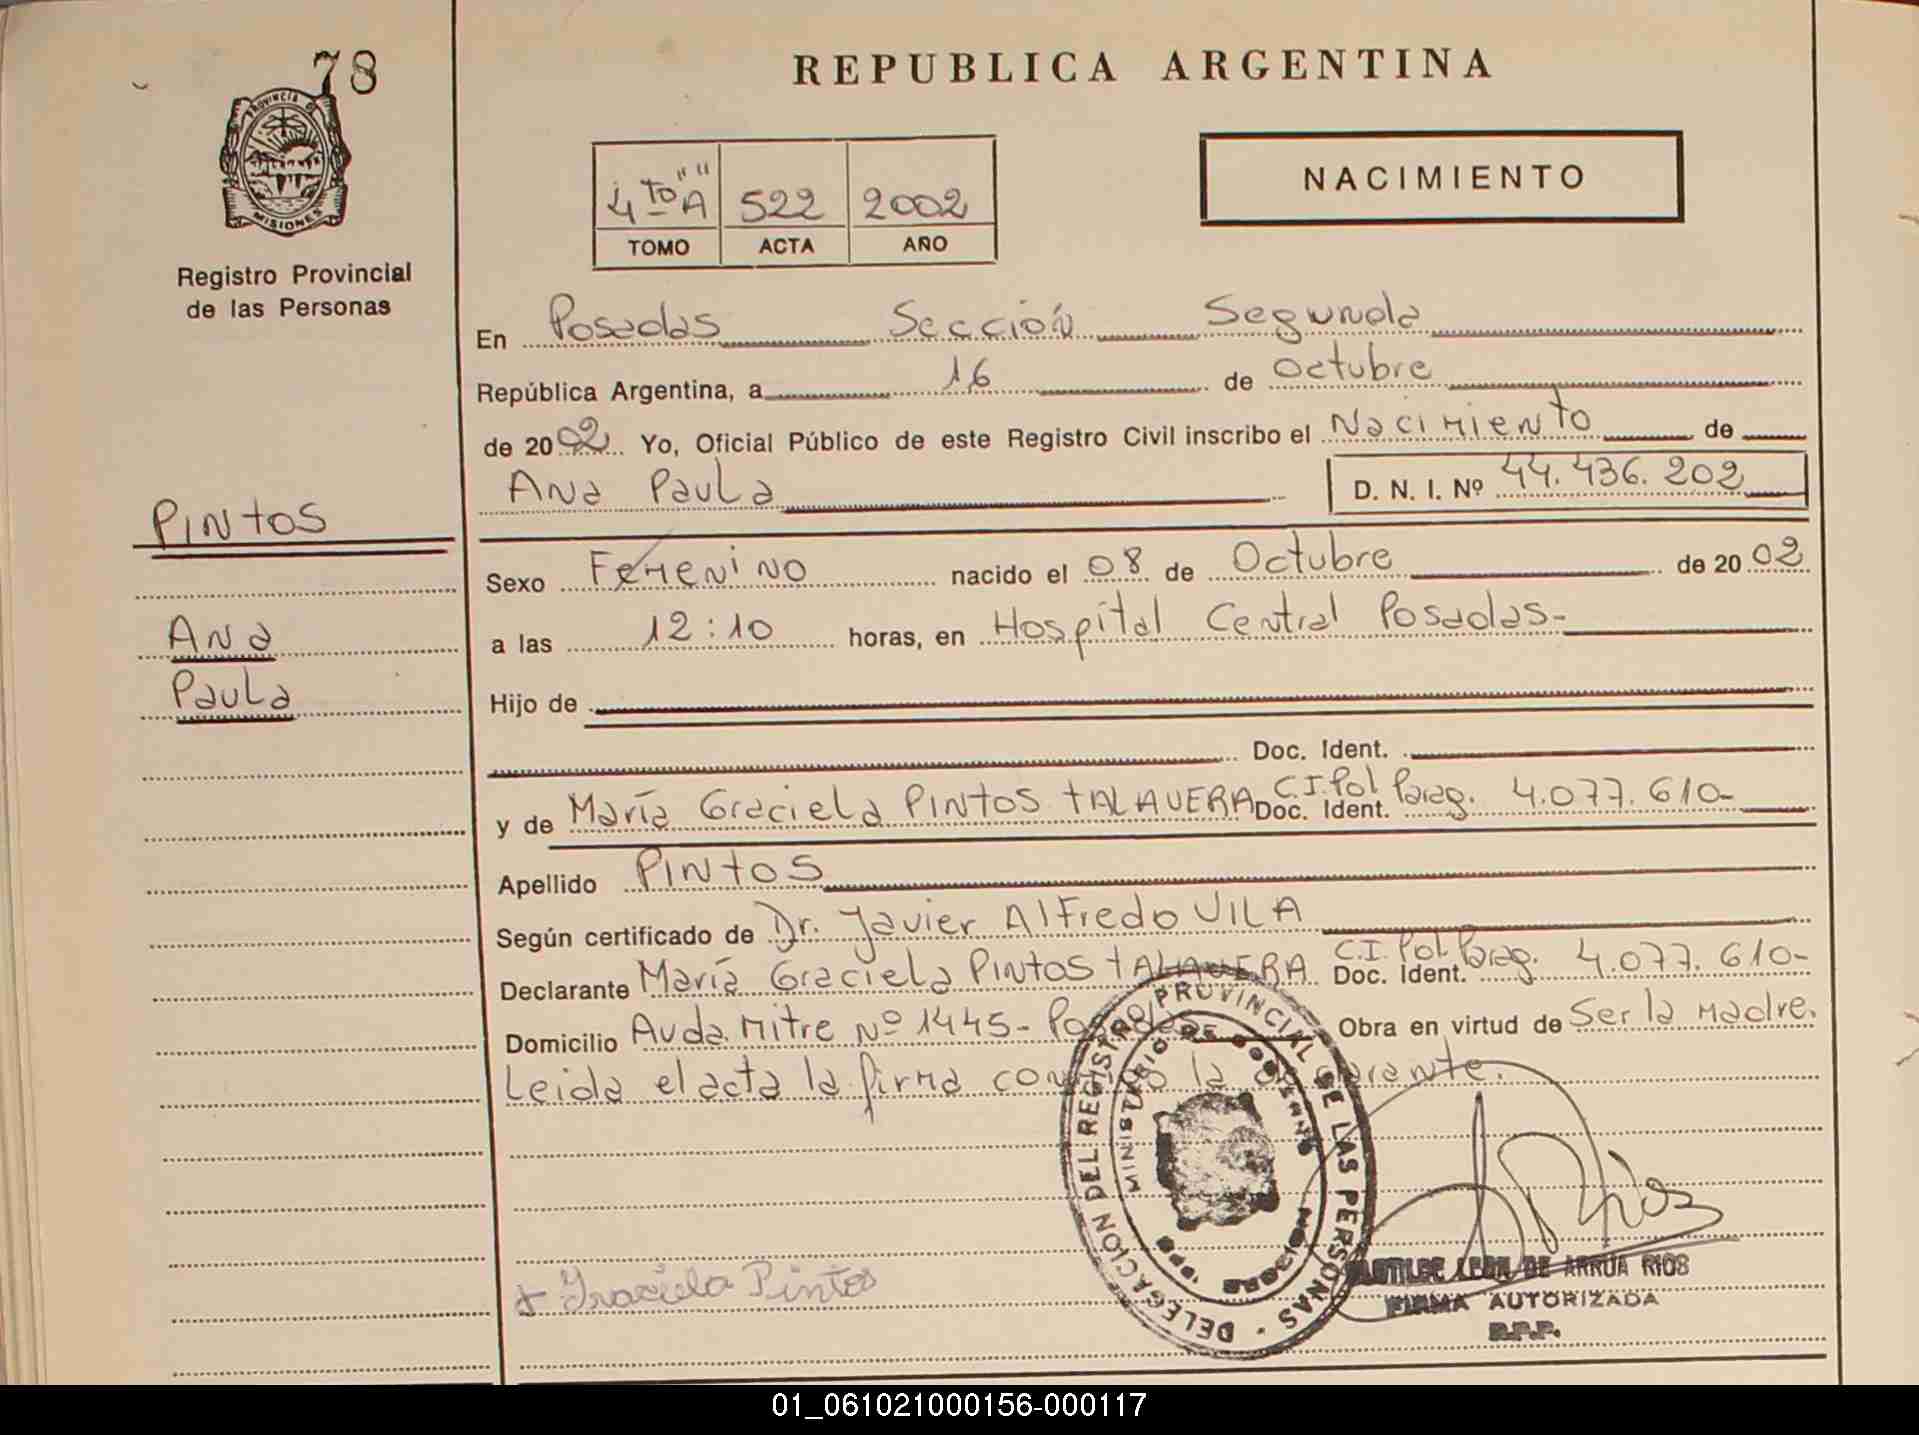 78
REPUBLICA ARGENTINA
PROVINCIA D
MISIONES
Registro Provincial
de las Personas
4 to "A" 522 2002
TOMO ACTA AÑO
NACIMIENTO
En Posadas Sección Segunda
República Argentina, a 16 de Octubre
de 2002 Yo, Oficial Público de este Registro Civil inscribo el Nacimiento de
Ana Paula D. N. I. Nº 44.436.202
PINtOS
Ana
Paula
Sexo Femenino nacido el 08 de Octubre de 2002
a las 12:10 horas, en Hospital Central Posadas-
Hijo de
Doc. Ident.
y de María Graciela PINtOS tALAVERA Doc. Ident. C.I.Pol Parag. 4.077.610-
Apellido PINtOS
Según certificado de Dr. Javier Alfredo VILA
Declarante María Graciela PINtOS tALAVERA Doc. Ident. C.I.Pol Parag. 4.077.610-
Domicilio Avda. Mitre Nº 1445- Posadas Obra en virtud de Ser la madre.
Leida el acta la firma conmigo la declarante.
DELEGACION DEL REGISTRO PROVINCIAL DE LAS PERSONAS
MINISTERIO DE GOBIERNO
Graciela Pintos
Rios
LEON DE ARRUA RIOS
FIRMA AUTORIZADA
R.P.P.
01_061021000156-000117